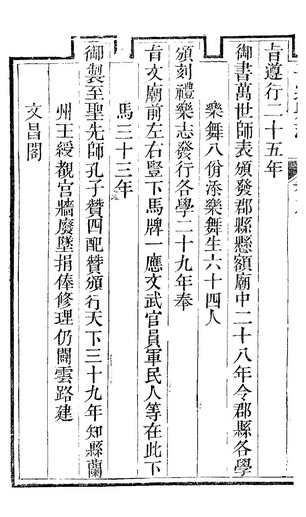 旨遵行二十五年
御書萬世師表頒發郡縣懸額廟中二十八年令郡縣各學
樂舞八份添樂舞生六十四人
頒刻禮樂志發行各學二十九年奉
旨文廟前左右豎下馬牌一應文武官員軍民人等在此下
馬三十三年
御製至聖先師孔子贊四配贊頒行天下三十九年知縣蘭
州王綬覩宫牆廢墜捐俸修理仍闢雲路建
文昌閣